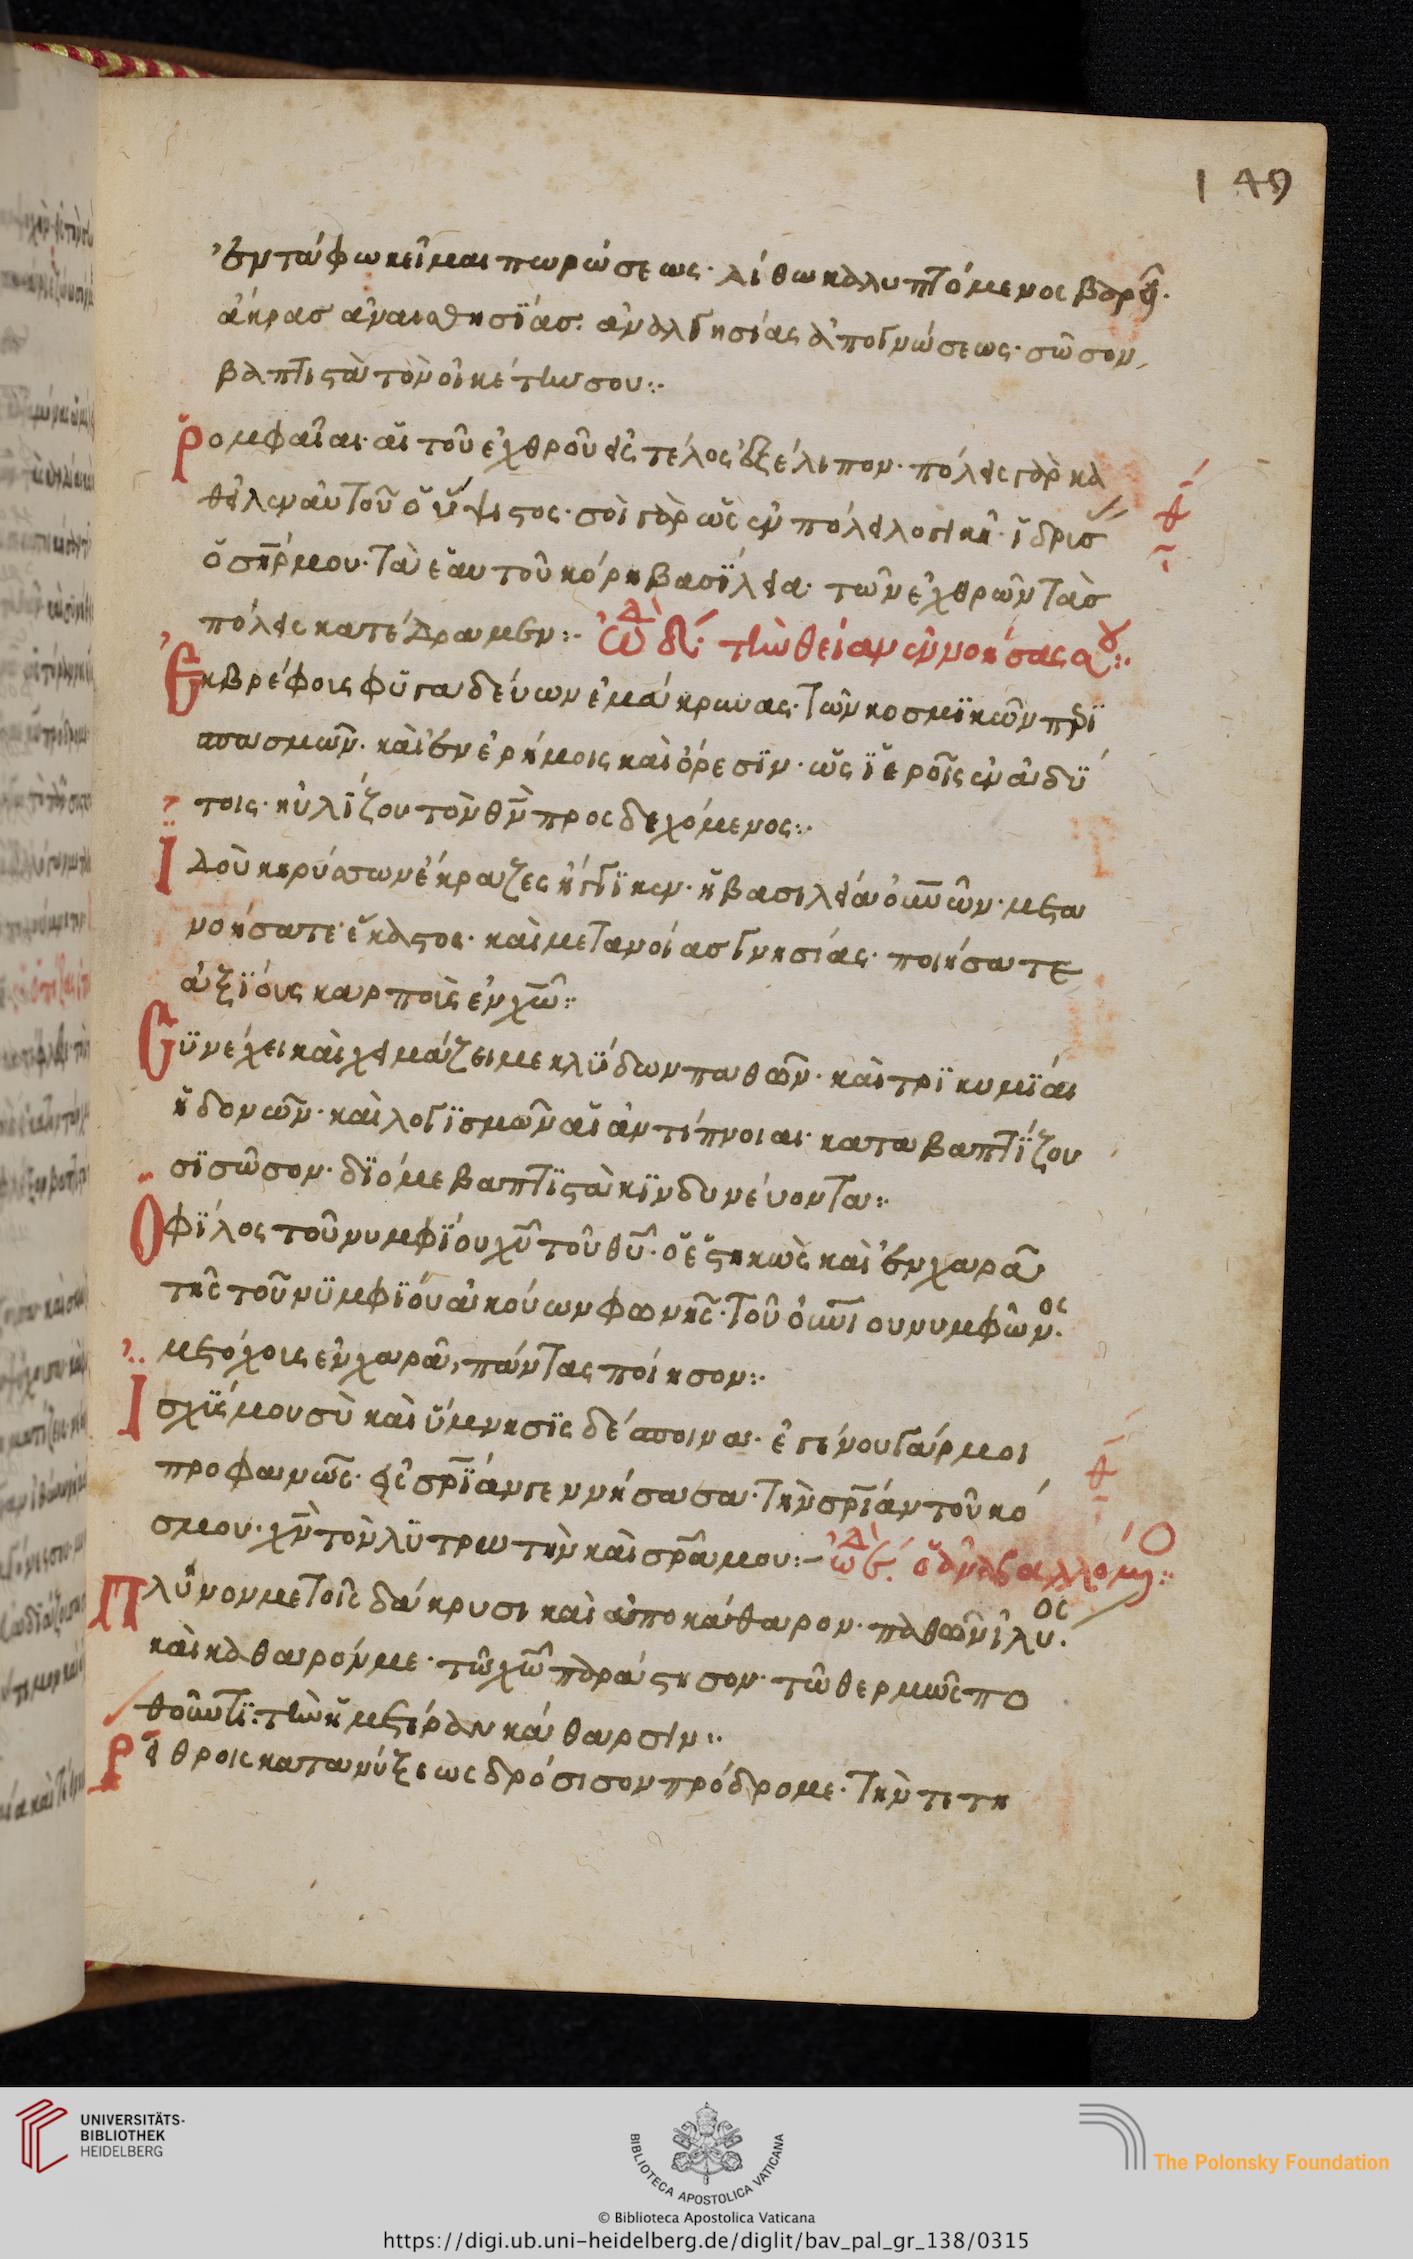 149
ἐν τάφω κεῖμαι πωρώσεως· λίθω καλυπτόμενος βαρεῖ·
ἄκρας ἀναισθησΐας· ἀναλγησίας ἀπογνώσεως· σῶσον
βαπτιστὰ τὸν οἰκέτην σου:·
Ῥομφαῖαι· αἱ τοῦ ἐχθροῦ εἰς τέλος ἐξέλιπον· πόλεις γὰρ κα
θεῖλεν αὐτοῦ ὁ ὕψιστος· σοὶ γὰρ ὡς ἐν πόλει λογικῆ· ἵδρισ
ὁ σηρ μου· τὰ ἑαυτοῦ κόρη βασΐλεια· τῶν ἐχθρῶν τὰς
πόλεις κατέδραμεν:· ὠδ δ΄· τὴν θείαν ἐννοήσας σου:·
Ἐκ βρέφοις φϋγαδεύων ἐμάκρυνας· τῶν κοσμϊκῶν πρϊ
σπασμῶν· καὶ ἐν ἐρήμοις καὶ ὄρεσϊν· ὡς ϊεροῖς ἐν ἀδϋ
τοις· ηὐλΐζου τὸν θν προσδεχόμενος:·
Ἰδοὺ κηρύσσων ἔκραζες ἤγγϊκεν· ἡ βασιλεία οὐνῶν· μετα
νοήσατε ἕκαστος· καὶ μετανοίας γνησίας· ποιήσατε
ἀξΐους καρποὺς ἐν χω:·
Σϋνέχει καὶ χειμάζει με κλϋδων παθῶν· καὶ τρϊκυμΐαι
ἡδονῶν· καὶ λογϊσμῶν αἱ ἀντίπνοιαι· καταβαπτΐζου
σϊ σῶσον· δϊό με βαπτϊστὰ κϊνδυνεύοντα:·
Ὁ φΐλος τοῦ νυμφΐου χυ τοῦ θυ· ὁ ἑστηκὼς καὶ ἐν χαρᾶ
τῆς τοῦ νϋμφΐου ἀκούων φωνῆς· τοῦ οὐνίου νυμφῶνος·
μετόχοις ἐν χαρᾶ, πάντας ποίησον:·
Ἰσχϋς μου σὺ καὶ ὕμνησϊς δέσποινα· ἐγένου γάρ μοι
προφανῶς· εἰς σρΐαν γεννήσασα· τὴν σρΐαν τοῦ κό
σμου· χν τὸν λϋτρωτὴν καὶ σρα μου:— ὠδ ε΄· ὁ ἀναβαλλόμενος:·
Πλῦνον με τοῖς δάκρυσι καὶ ἀποκάθαρον· παθῶν ἰλύος·
καὶ καθαρόν με· τῶ χω παράστησον· τῶ θερμῶς πο
θοῦντϊ· τὴν ἡμετέραν κάθαρσιν:·
Ῥείθροις κατανύξεως δρόσισον πρόδρομε· τὴν τε τη
UNIVERSITÄTS-
BIBLIOTHEK
HEIDELBERG
BIBLIOTECA APOSTOLICA VATICANA
© Biblioteca Apostolica Vaticana
The Polonsky Foundation
https://digi.ub.uni-heidelberg.de/diglit/bav_pal_gr_138/0315